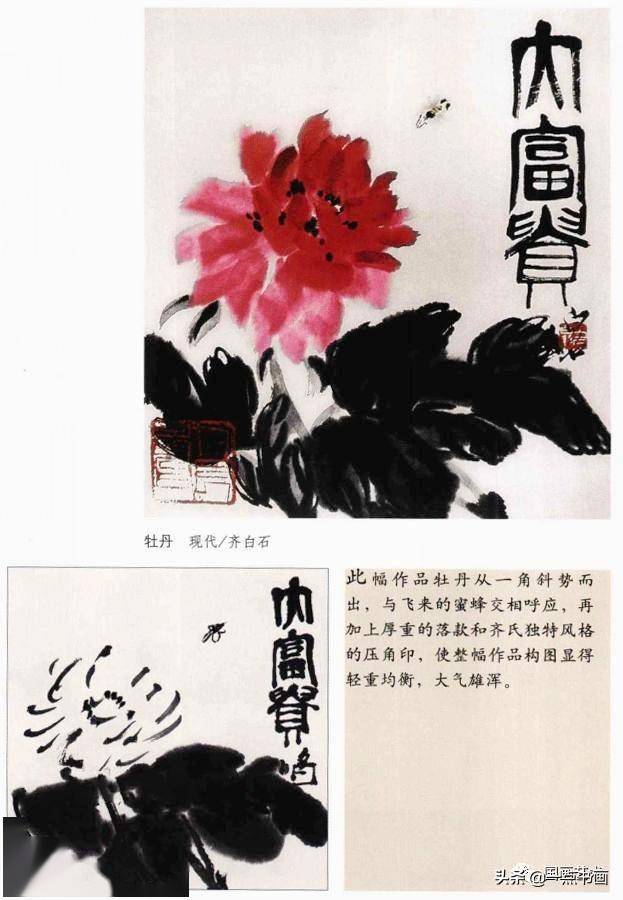 大富貴
牡丹 现代/齐白石
大富貴
此幅作品牡丹从一角斜势而
出，与飞来的蜜蜂交相呼应，再
加上厚重的落款和齐氏独特风格
的压角印，使整幅作品构图显得
轻重均衡，大气雄浑。
头条